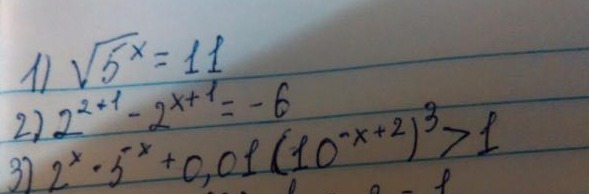 1) √5^x = 11
2) 2^{2+1} - 2^{x+1} = -6
3) 2^x · 5^x + 0,01(10^{-x+2})^3 > 1